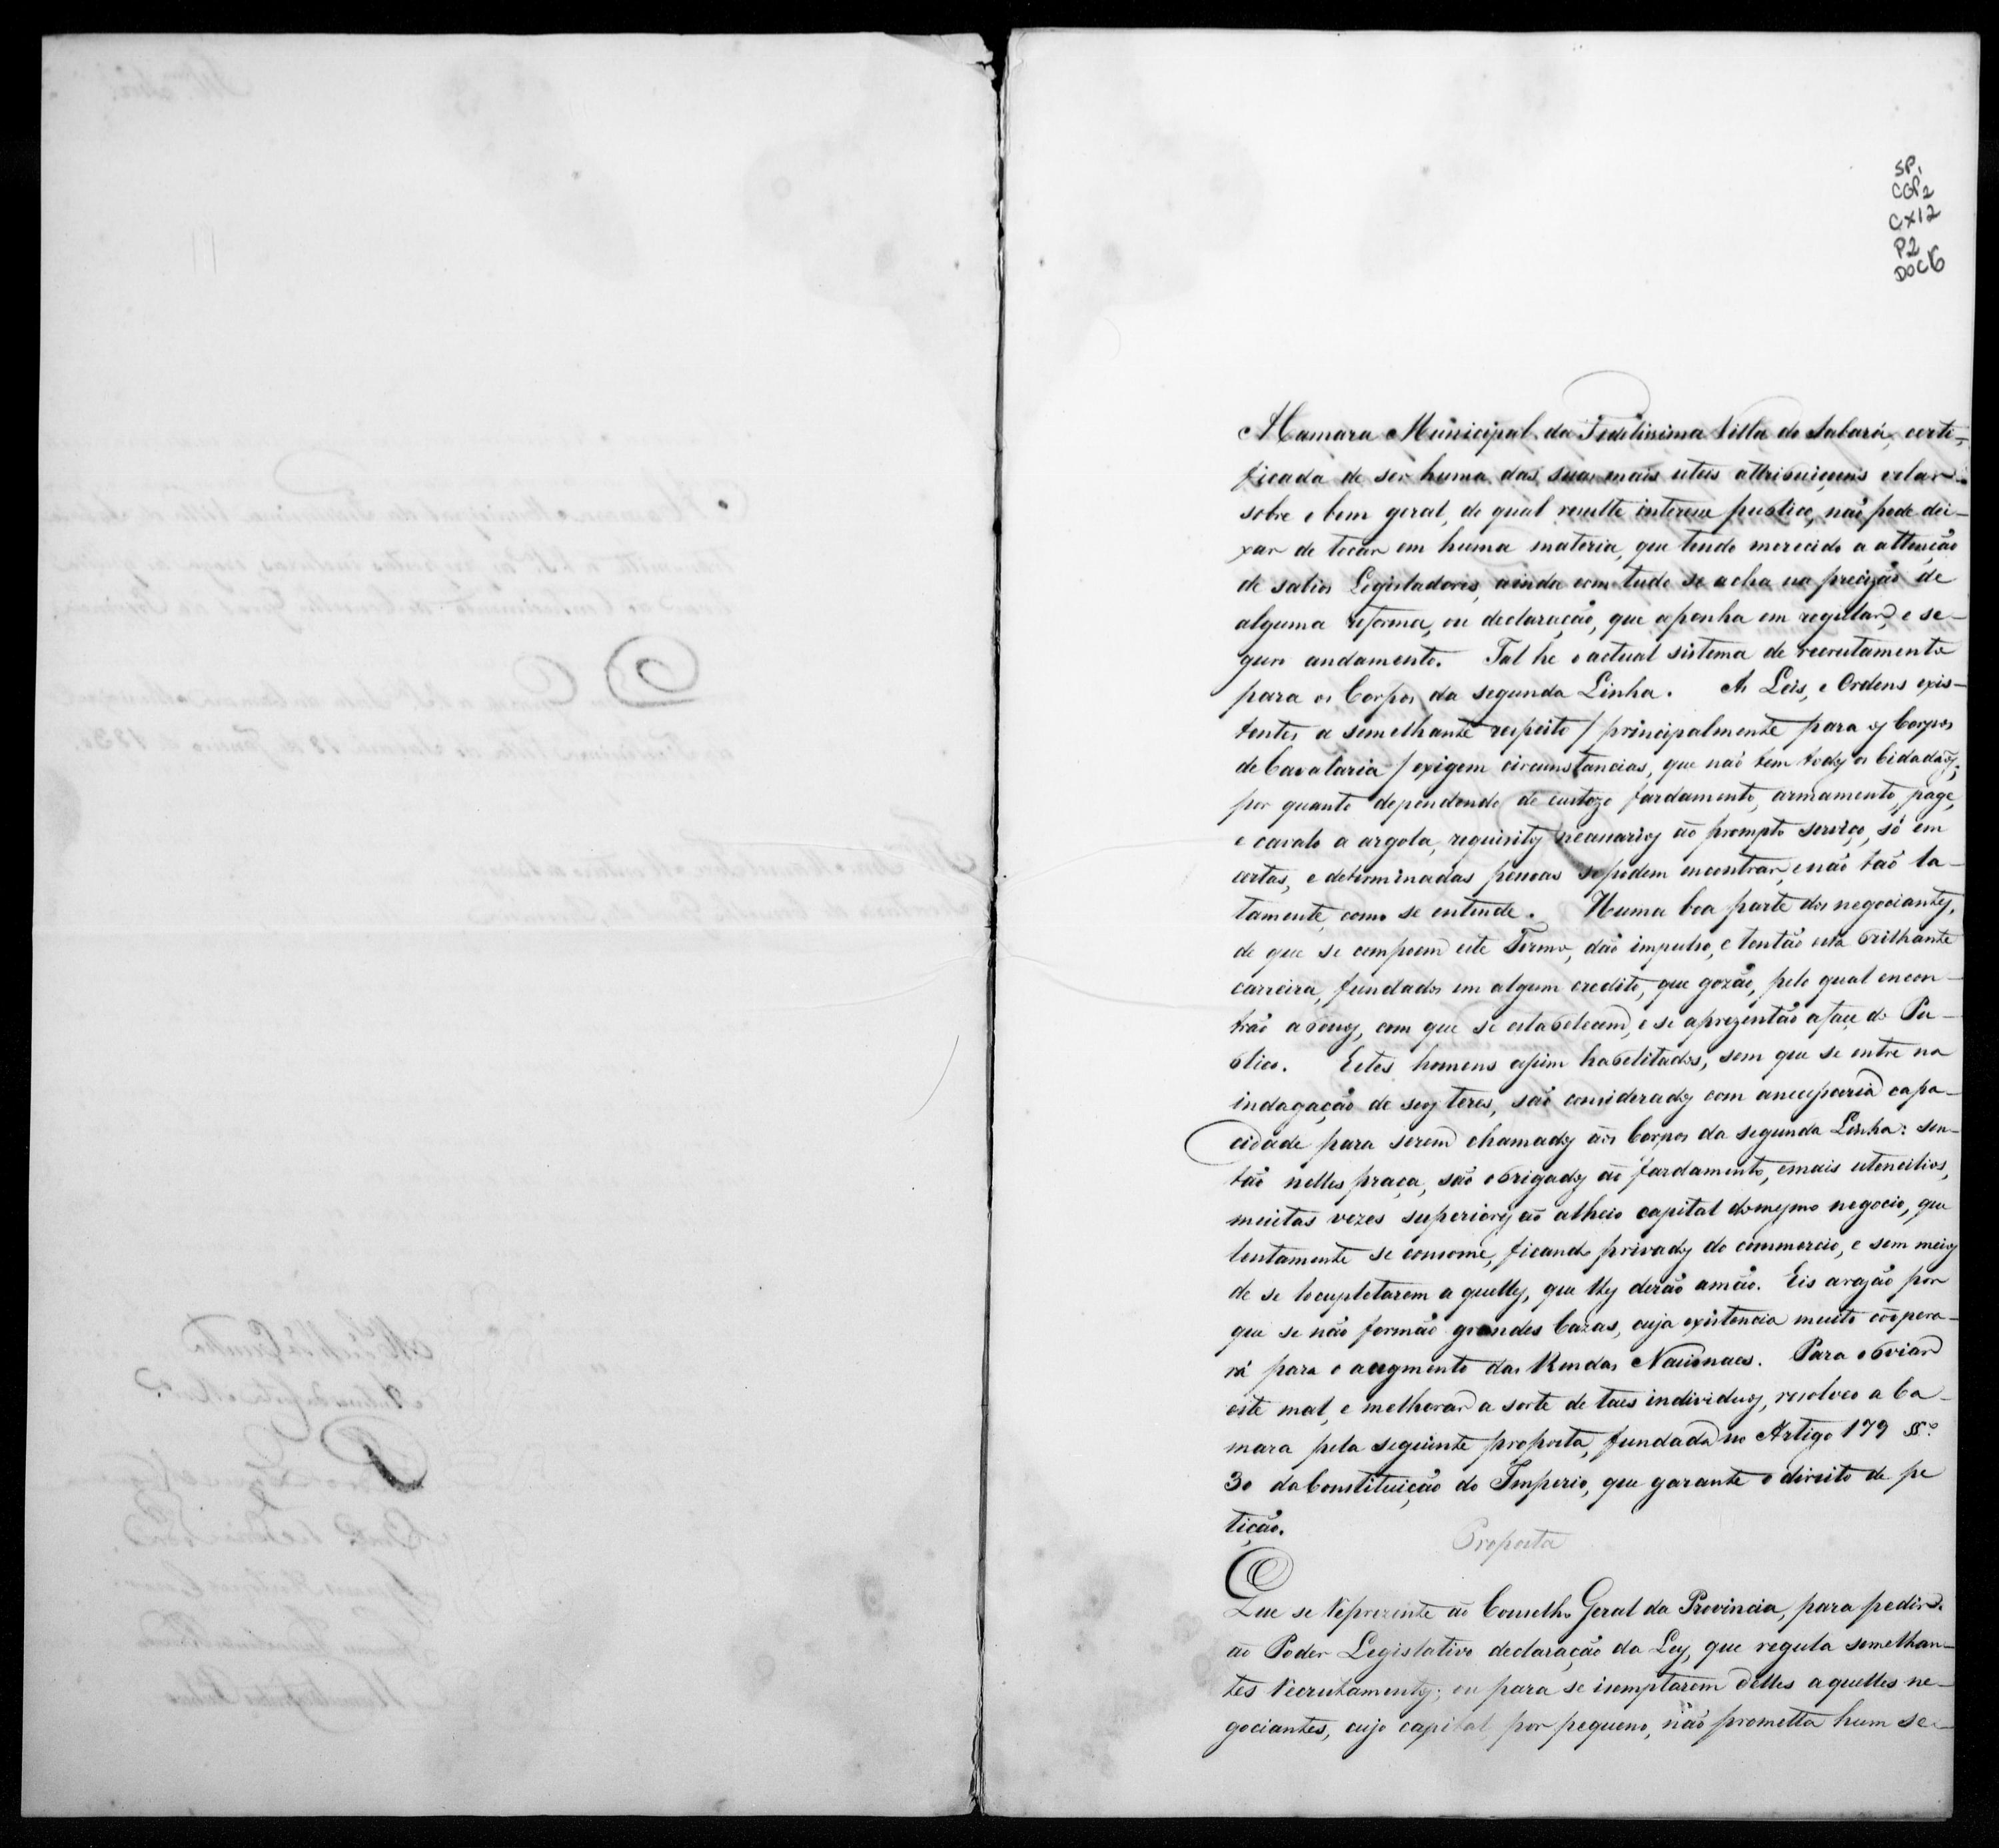 SP,
CGP2
CX12
P2
DOC6
A Camara Municipal da Fidelissima Villa do Sabará, certi-
ficada de ser huma das suas mais uteis attribuiçoens velar
sobre o bem geral, do qual resulte interesse publico, não pode dei-
xar de tocar em huma materia, que tendo merecido a attenção
de sabios Legisladores, ainda com tudo se acha na precizão de
alguma reforma, ou declaração, que aponha em regular, e se-
guro andamento. Tal he o actual sistema de recrutamento
para os Corpos da segunda Linha. As Leis, e Ordens exis-
tentes a semelhante respeito / principalmente para os Corpos
de Cavalaria / exigem circunstancias, que não tem todos os Cidadãos;
por quanto dependendo de custozo fardamento, armamento, page,
e cavalo a argola, requisitos necessarios ao prompto serviço, só em
certas, e determinadas pessoas se podem encontrar, e não tão la-
tamente, como se entende. Huma boa parte dos negociantes,
de que se compoem este Termo, dão impulso, e tentão esta brilhante
carreira, fundados em algum credito, que gozão, pelo qual encon-
trão abonos, com que se estabelecem, e se aprezentão a face do Pu-
blico. Estes homens assim habelitados, sem que se entre na
indagação de seos teres, são considerados com a necessaria capa-
cidade para serem chamados aos Corpos da segunda Linha: sen-
tão nelles praça, são obrigados ao fardamento, e mais utencilios,
muitas vezes superiores ao alheio capital do mesmo negocio, que
lentamente se consome, ficando privados do commercio, e sem meios
de se locupletarem a quelles, que lhes derão a mão. Eis a razão por
que se não formão grandes Cazas, cuja existencia muito coopera-
rá para o augmento das Rendas Nacionaes. Para obviar
este mal, e melhorar a sorte de taes individuos, resolveo a Ca-
mara pela seguinte proposta, fundada no Artigo 179 §º
30 da Constituição do Imperio, que garante o direito de pe
tição.
Proposta
Que se Reprezente ao Conselho Geral da Provincia, para pedir
ao Poder Legislativo declaração da Ley, que regula semelhan-
tes Recrutamentos; ou para se isemptarem delles aquelles ne-
gociantes, cujo capital, por pequeno, não prometta hum se-